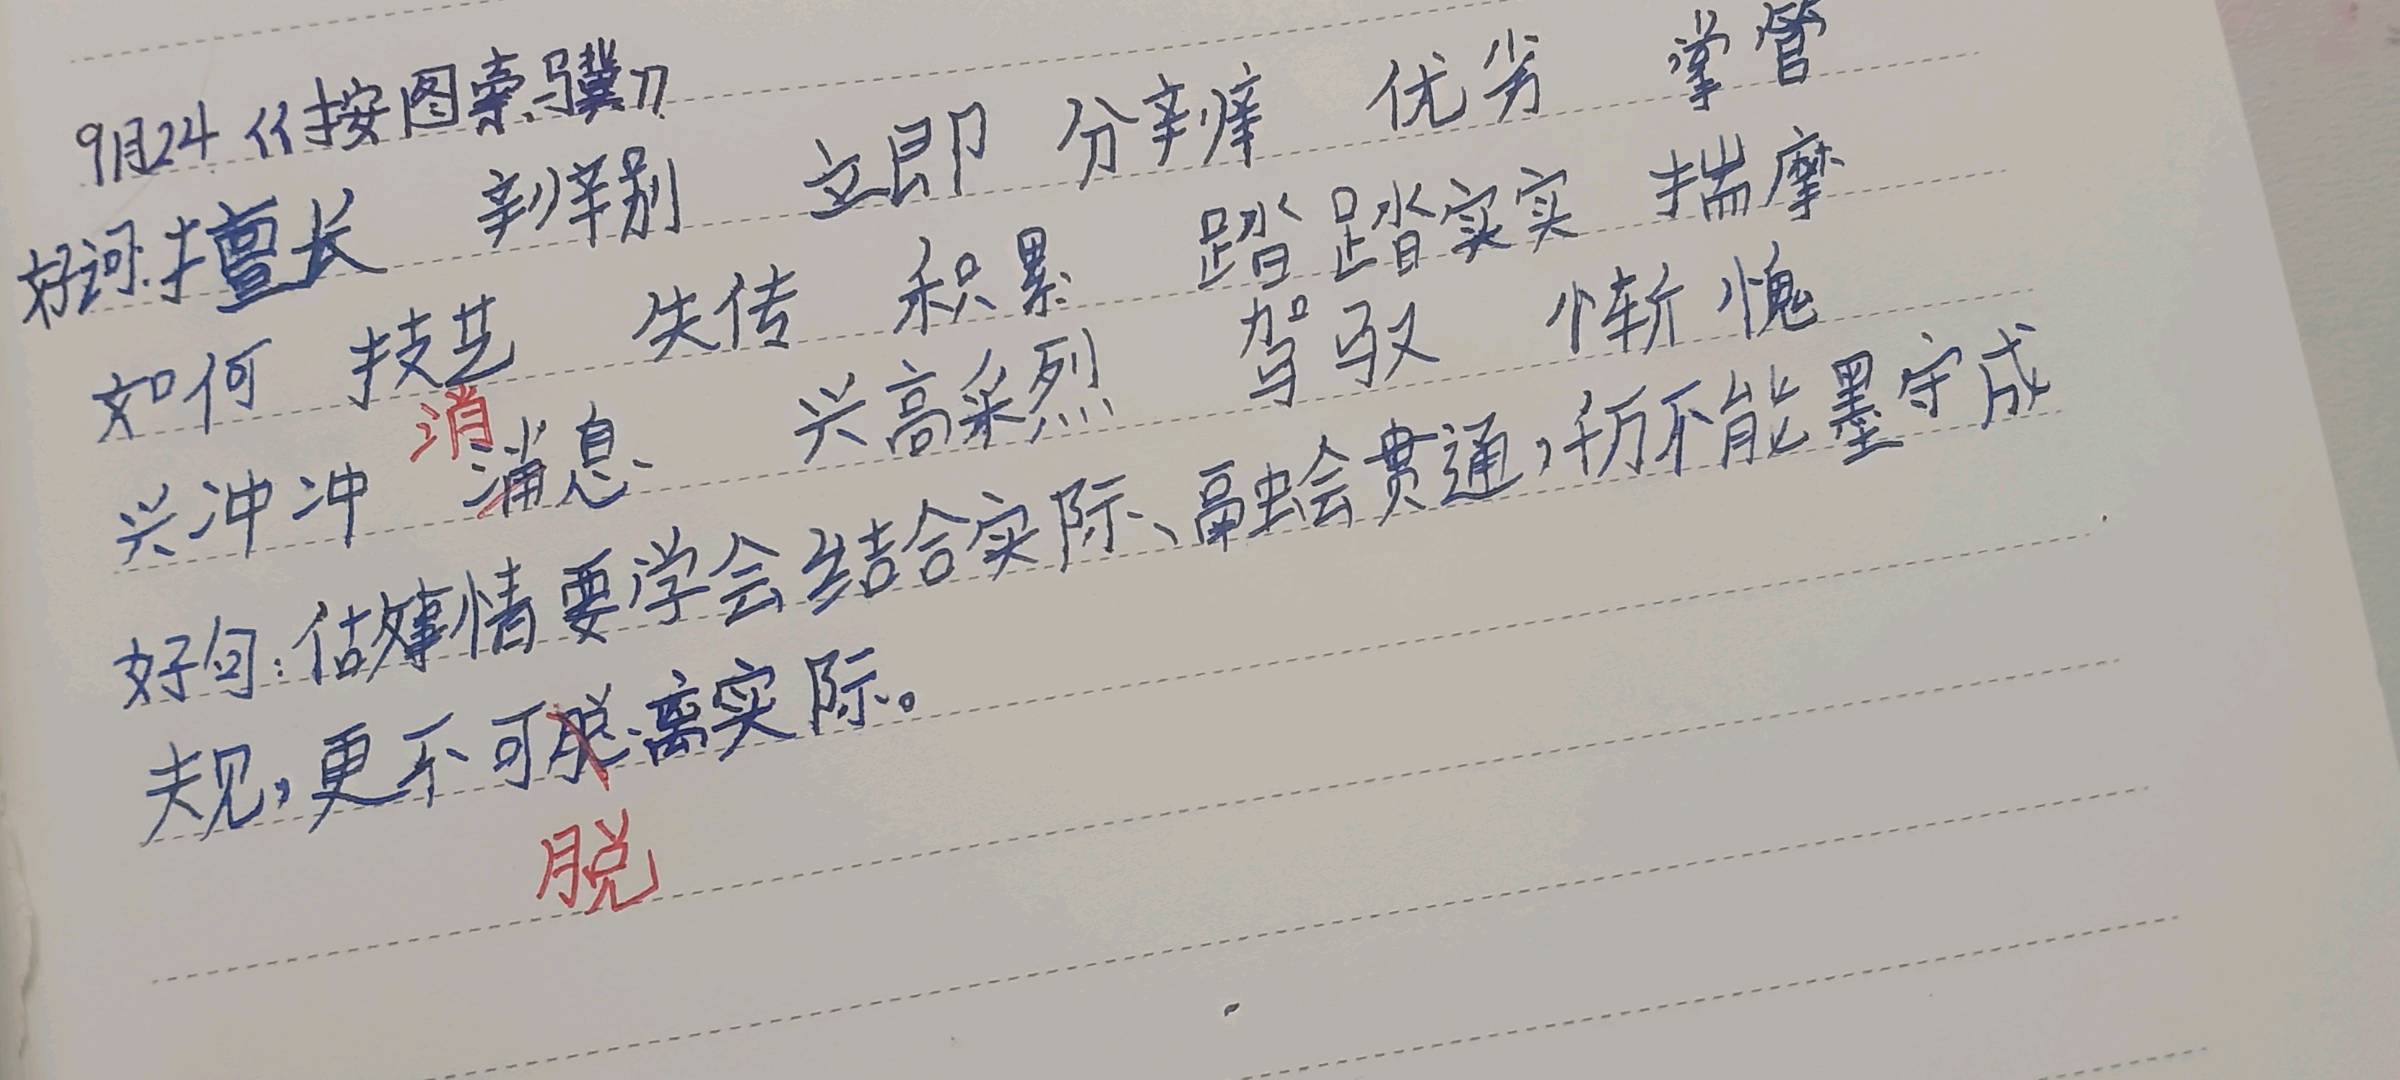 9月24《按图索骥》
好词:擅长 辨别 立即 分辨 优劣 掌管
如何 技艺 失传 积累 踏踏实实 揣摩
消
兴冲冲 消息 兴高采烈 驾驭 惭愧
好句:做事情要学会结合实际、融会贯通,切不能墨守成
规,更不可脱离实际。
脱